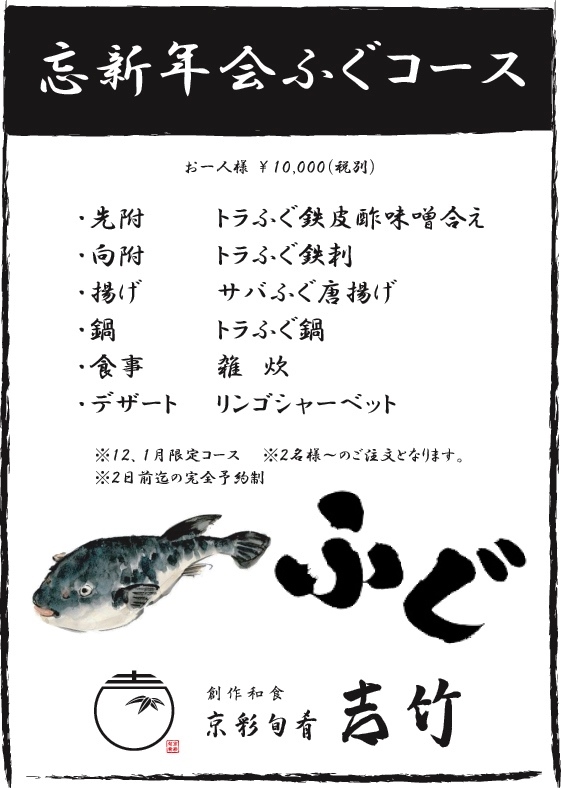 忘新年会ふぐコース
お一人様 ￥10,000(税別)
・先附 トラふぐ鉄皮酢味噌合え
・向附 トラふぐ鉄刺
・揚げ サバふぐ唐揚げ
・鍋 トラふぐ鍋
・食事 雑 炊
・デザート リンゴシャーベット
※12、1月限定コース ※2名様～のご注文となります。
※2日前迄の完全予約制
ふぐ
創作和食
京彩旬肴 吉竹